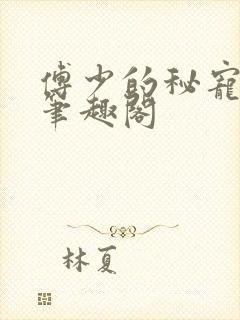 傅少的秘宠
筆趣閣
林夏